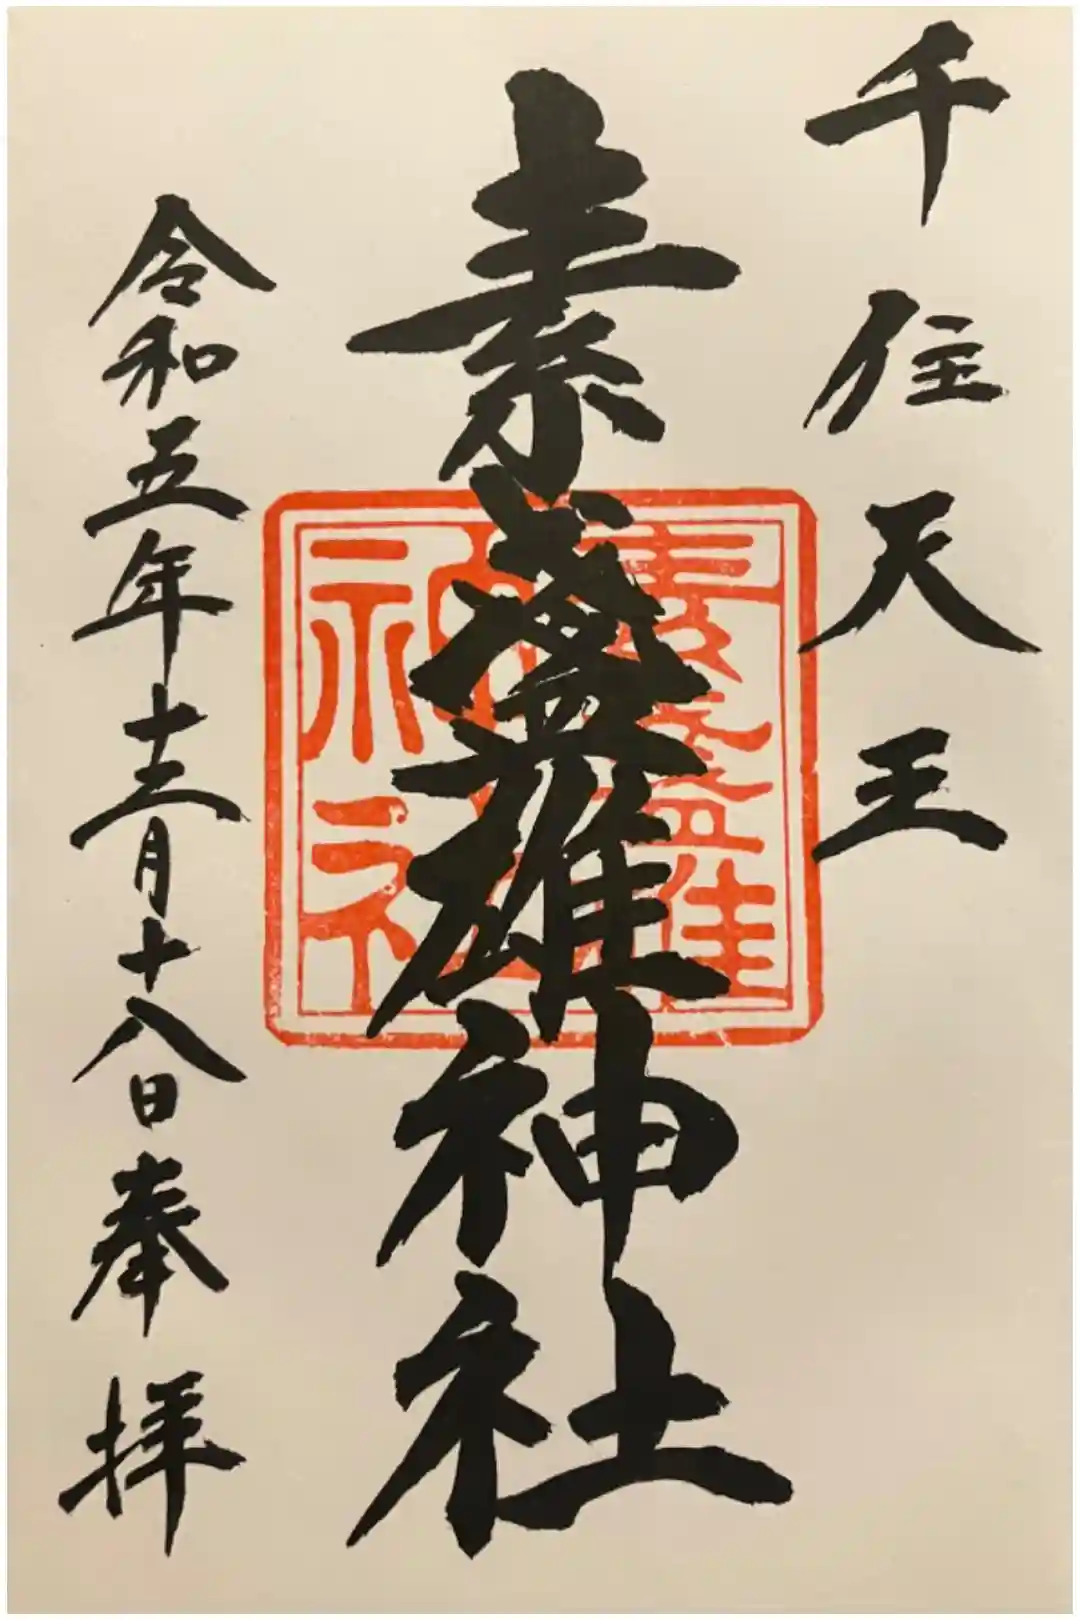 千住天王
素盞雄神社
素盞雄
神社
令和五年十二月十八日奉拝